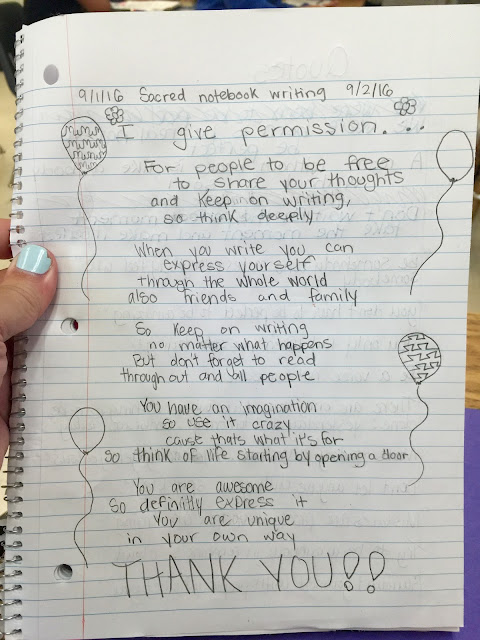 9/1/16 Sacred notebook writing 9/2/16
I give permission....
For people to be free
to share your thoughts
and keep on writing,
so think deeply
When you write you can
express yourself
through the whole world
also friends and family
So keep on writing
no matter what happens
But don't forget to read
throughout and all people
You have an imagination
so use it crazy
cause thats what it's for
so think of life starting by opening a door
You are awesome
So definitly express it
You are unique
in your own way
THANK YOU!!